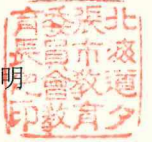 北海道夕
張市教育
委員會教
育長之印
明